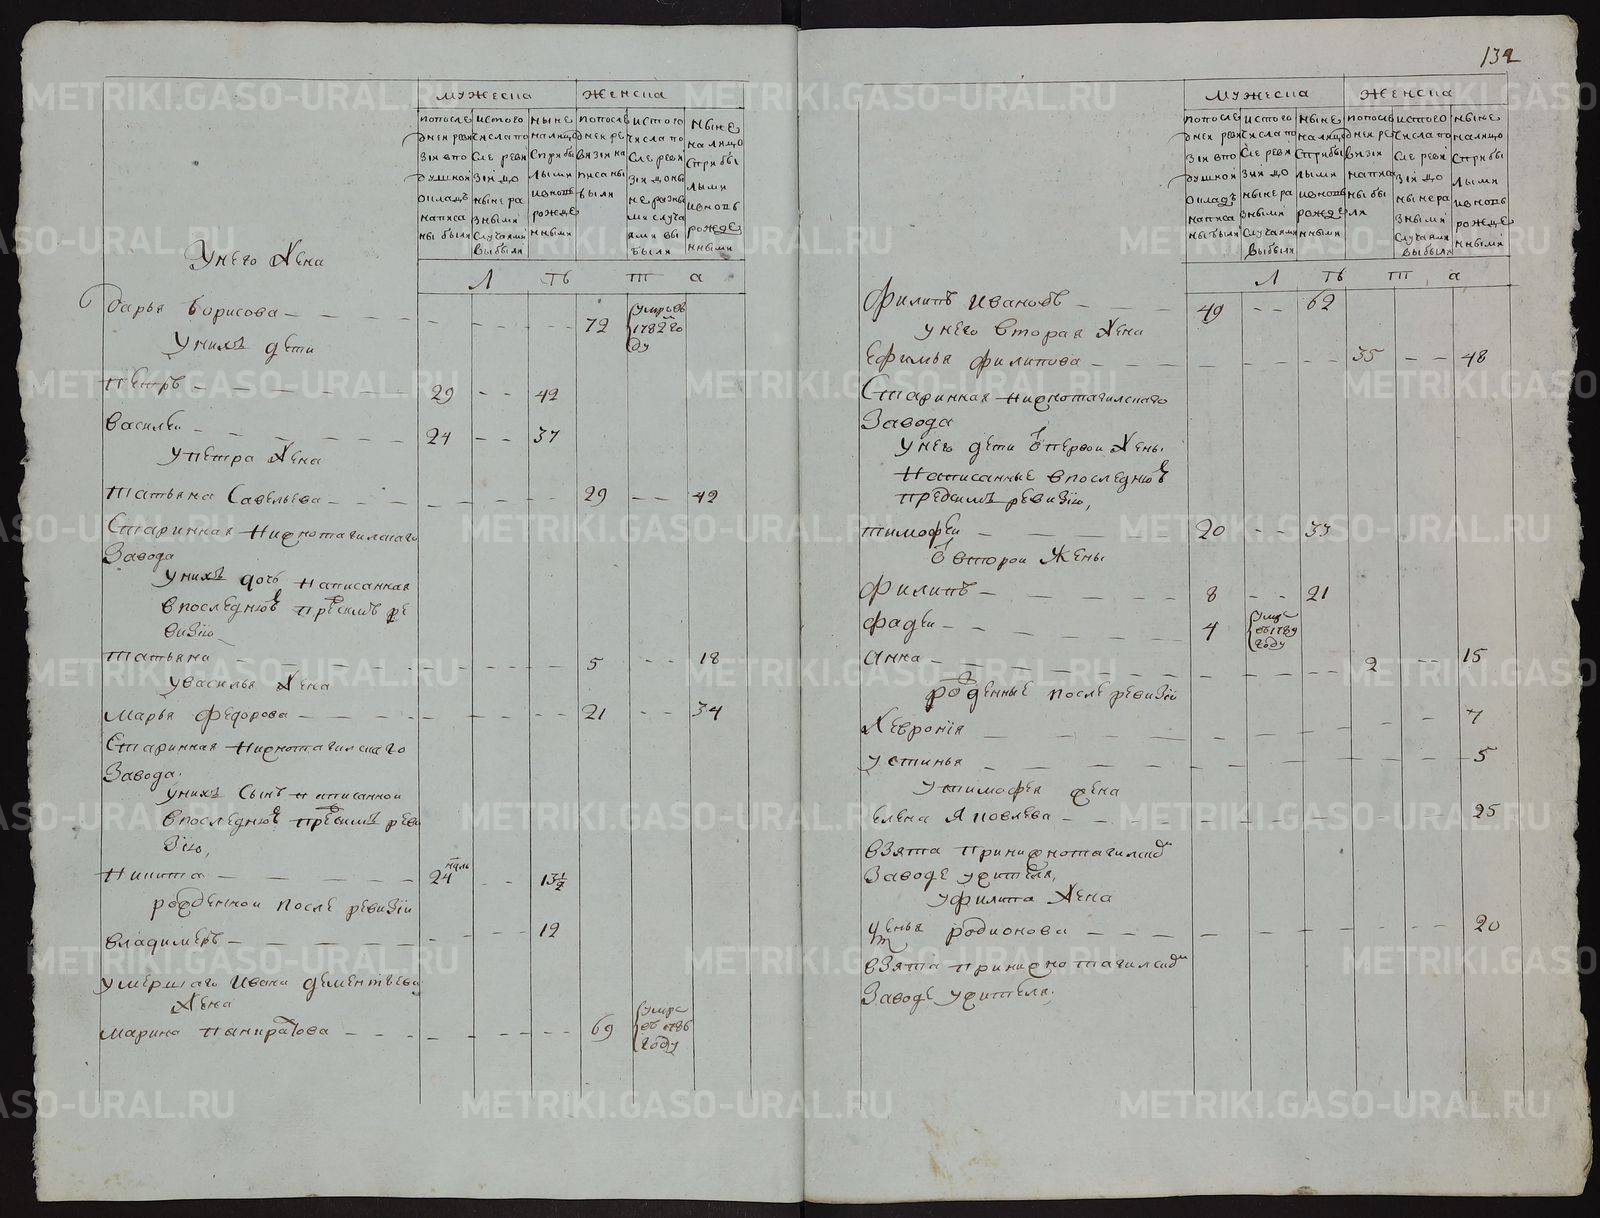 132
мужеска
женска
попосле
дней реви
зiи впо
душной
окладъ
написа
ны были
истого
числа по
сле реви
зiи до
ныне ра
зными
случаями
выбыли
ныне
налицо
сприбы
лыми
ивновь
рожде
нными
попосле
дней ре
визiи на
писаны
были
истого
числа по
сле реви
зiи доны
не разны
ми случа
ями вы
были
ныне
налицо
сприбы
лыми
ивновь
рожде
нными
Л ть т а
Унего Жена
Дарья Борисова 72 умре въ
1782 го
ду
Унихъ дети
Петръ 29 42
Василеи 24 37
Упетра Жена
Татьяна Савельева 29 42
Старинная Нижнотагилскаго
Завода
Унихъ дочь написанная
впоследнюю предсимъ ре
визiю
Татьяна 5 18
Увасилья Жена
Марья Федорова 21 34
Старинная Нижнотагилскаго
Завода
Унихъ Сынъ написанной
впоследнюю предсимъ реви
зiю,
Никита 24 нъдль 13½
рожденной после ревизiи
Владимеръ 12
умершаго Ивана Дементьева
Жена
Марина Панкратова 69 умре
въ 1786
году
мужеска
женска
попосле
дней реви
зiи впо
душной
окладъ
написа
ны были
истого
числа по
сле реви
зiи до
ныне ра
зными
случаями
выбыли
ныне
налицо
сприбы
лыми
ивновь
рожде
нными
попосле
дней ре
визiи
написа
ны бы
ли
истого
числа по
сле реви
зiи до
ныне ра
зными
случаями
выбыли
ныне
налицо
сприбы
лыми
ивновь
рожде
нными
Л ть т а
Филипъ Ивановъ 49 62
унего вторая Жена
Ефимья Филипова 35 48
Старинная Нижнотагилскаго
Завода
Унего дети отпервой Жены
Написанные впоследнюю
предсимъ ревизiю,
Тимофеи 20 33
отвторои Жены
Филипъ 8 21
Фадеи 4 умре
въ 1789
году
Анна 2 15
рожденные после ревизiи
Хеврония 7
Устинья 5
Утимофея жена
Елена Яковлева 25
взята принижнотагилскомъ
Заводе ужителя,
Уфилипа Жена
Родионова 20
взята принижнотагилскомъ
Заводе ужителя,
METRIKI.GASO-URAL.RU